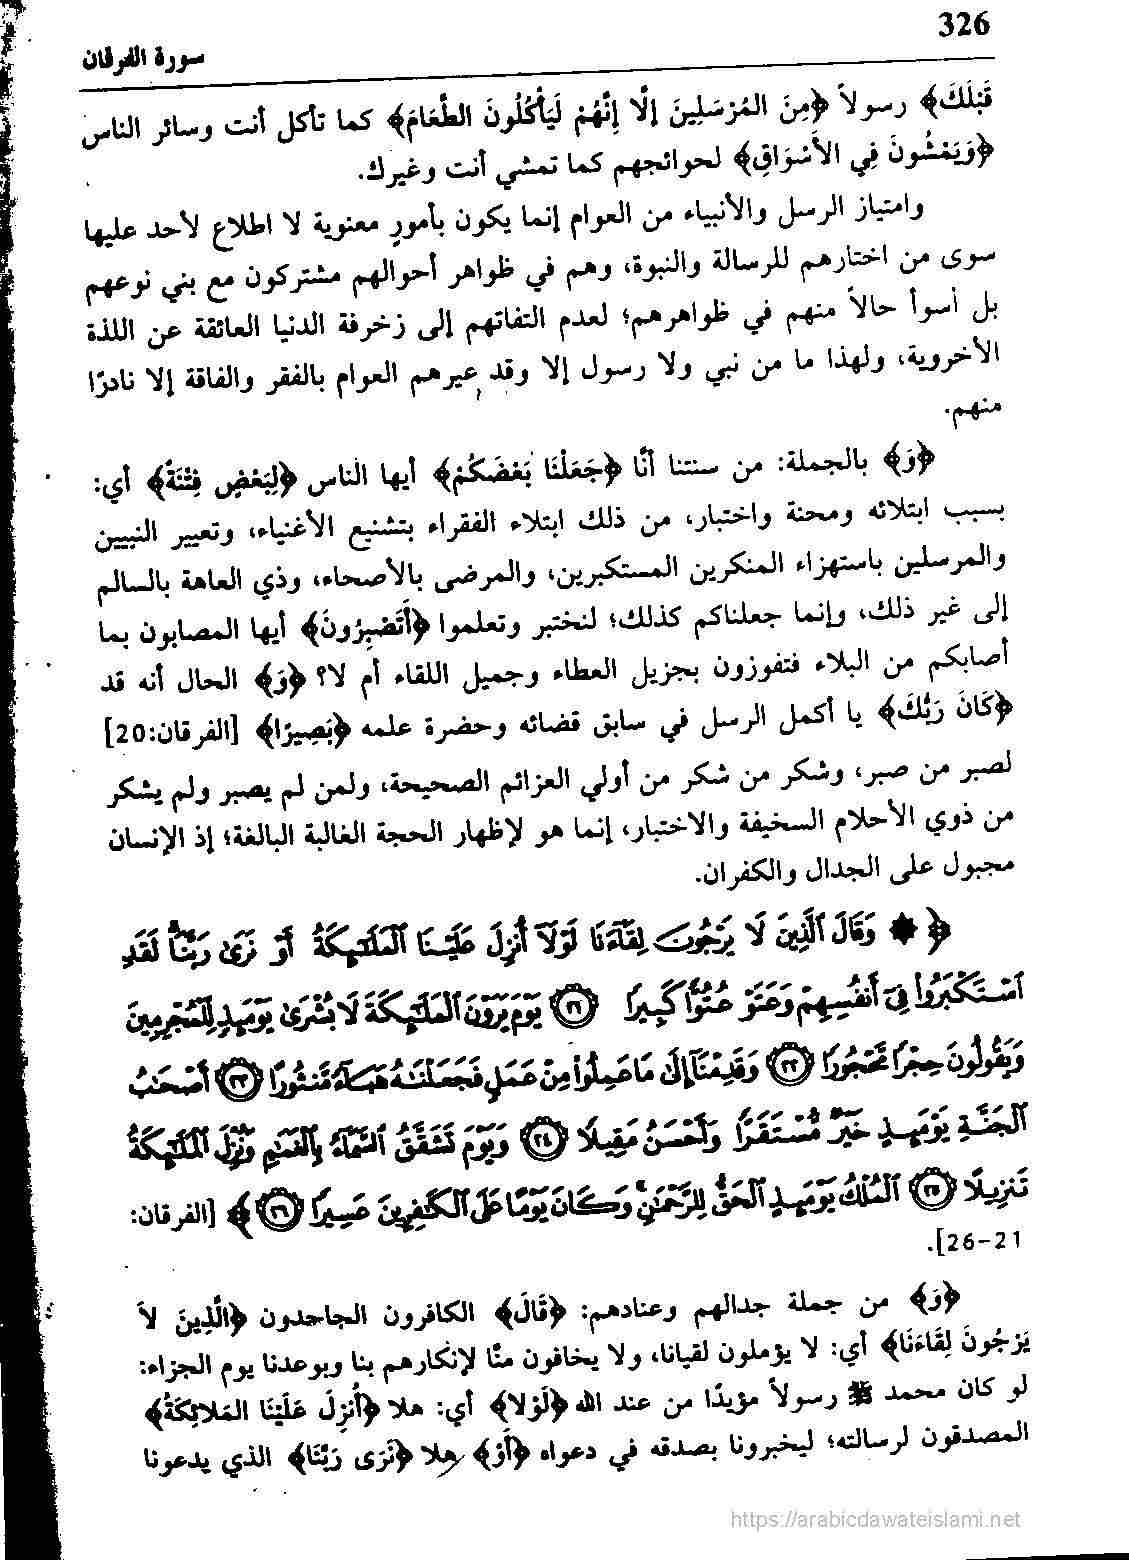 326
سورة الفرقان
قَبْلَكَ﴾ رسولاً ﴿مِنَ المُرْسَلِينَ إِلَّا إِنَّهُمْ لَيَأْكُلُونَ الطَّعَامَ﴾ كما تأكل أنت وسائر الناس
﴿وَيَمْشُونَ فِي الأَسْوَاقِ﴾ لحوائجهم كما تمشي أنت وغيرك.
وامتياز الرسل والأنبياء من العوام إنما يكون بأمورٍ معنوية لا اطلاع لأحد عليها
سوى من اختارهم للرسالة والنبوة، وهم في ظواهر أحوالهم مشتركون مع بني نوعهم
بل أسوأ حالاً منهم في ظواهرهم؛ لعدم التفاتهم إلى زخرفة الدنيا العائقة عن اللذة
الأخروية، ولهذا ما من نبي ولا رسول إلا وقد عيرهم العوام بالفقر والفاقة إلا نادرًا
منهم.
﴿وَ﴾ بالجملة: من سنتنا أنَّا ﴿جَعَلْنَا بَعْضَكُمْ﴾ أيها الناس ﴿لِبَعْضٍ فِتْنَةً﴾ أي:
بسبب ابتلائه ومحنة واختبار، من ذلك ابتلاء الفقراء بتشنيع الأغنياء، وتعيير النبيين
والمرسلين باستهزاء المنكرين المستكبرين، والمرضى بالأصحاء، وذي العاهة بالسالم
إلى غير ذلك، وإنما جعلناكم كذلك؛ لنختبر وتعلموا ﴿أَتَصْبِرُونَ﴾ أيها المصابون بما
أصابكم من البلاء فتفوزون بجزيل العطاء وجميل اللقاء أم لا؟ ﴿وَ﴾ الحال أنه قد
﴿كَانَ رَبُّكَ﴾ يا أكمل الرسل في سابق قضائه وحضرة علمه ﴿بَصِيرًا﴾ [الفرقان:20]
لصبر من صبر، وشكر من شكر من أولي العزائم الصحيحة، ولمن لم يصبر ولم يشكر
من ذوي الأحلام السخيفة والاختبار، إنما هو لإظهار الحجة الغالبة البالغة؛ إذ الإنسان
مجبول على الجدال والكفران.
﴿ ۞ وَقَالَ ٱلَّذِينَ لَا يَرْجُونَ لِقَآءَنَا لَوْلَآ أُنزِلَ عَلَيْنَا ٱلْمَلَـٰٓئِكَةُ أَوْ نَرَىٰ رَبَّنَا ۗ لَقَدِ
ٱسْتَكْبَرُوا۟ فِىٓ أَنفُسِهِمْ وَعَتَوْ عُتُوًّا كَبِيرًا ﴿٢١﴾ يَوْمَ يَرَوْنَ ٱلْمَلَـٰٓئِكَةَ لَا بُشْرَىٰ يَوْمَئِذٍ لِّلْمُجْرِمِينَ
وَيَقُولُونَ حِجْرًا مَّحْجُورًا ﴿٢٢﴾ وَقَدِمْنَآ إِلَىٰ مَا عَمِلُوا۟ مِنْ عَمَلٍ فَجَعَلْنَـٰهُ هَبَآءً مَّنثُورًا ﴿٢٣﴾ أَصْحَـٰبُ
ٱلْجَنَّةِ يَوْمَئِذٍ خَيْرٌ مُّسْتَقَرًّا وَأَحْسَنُ مَقِيلًا ﴿٢٤﴾ وَيَوْمَ تَشَقَّقُ ٱلسَّمَآءُ بِٱلْغَمَـٰمِ وَنُزِّلَ ٱلْمَلَـٰٓئِكَةُ
تَنزِيلًا ﴿٢٥﴾ ٱلْمُلْكُ يَوْمَئِذٍ ٱلْحَقُّ لِلرَّحْمَـٰنِ ۚ وَكَانَ يَوْمًا عَلَى ٱلْكَـٰفِرِينَ عَسِيرًا ﴿٢٦﴾ ﴾ [الفرقان:
21-26].
﴿وَ﴾ من جملة جدالهم وعنادهم: ﴿قَالَ﴾ الكافرون الجاحدون ﴿الَّذِينَ لاَ
يَرْجُونَ لِقَاءَنَا﴾ أي: لا يؤملون لقيانا، ولا يخافون منَّا لإنكارهم بنا وبوعدنا يوم الجزاء:
لو كان محمد ﷺ رسولاً مؤيدًا من عند الله ﴿لَوْلا﴾ أي: هلا ﴿أُنزِلَ عَلَيْنَا المَلائِكَةُ﴾
المصدقون لرسالته؛ ليخبرونا بصدقه في دعواه ﴿أَوْ﴾ هلا ﴿نَرَى رَبَّنَا﴾ الذي يدعونا
https://arabicdawateislami.net